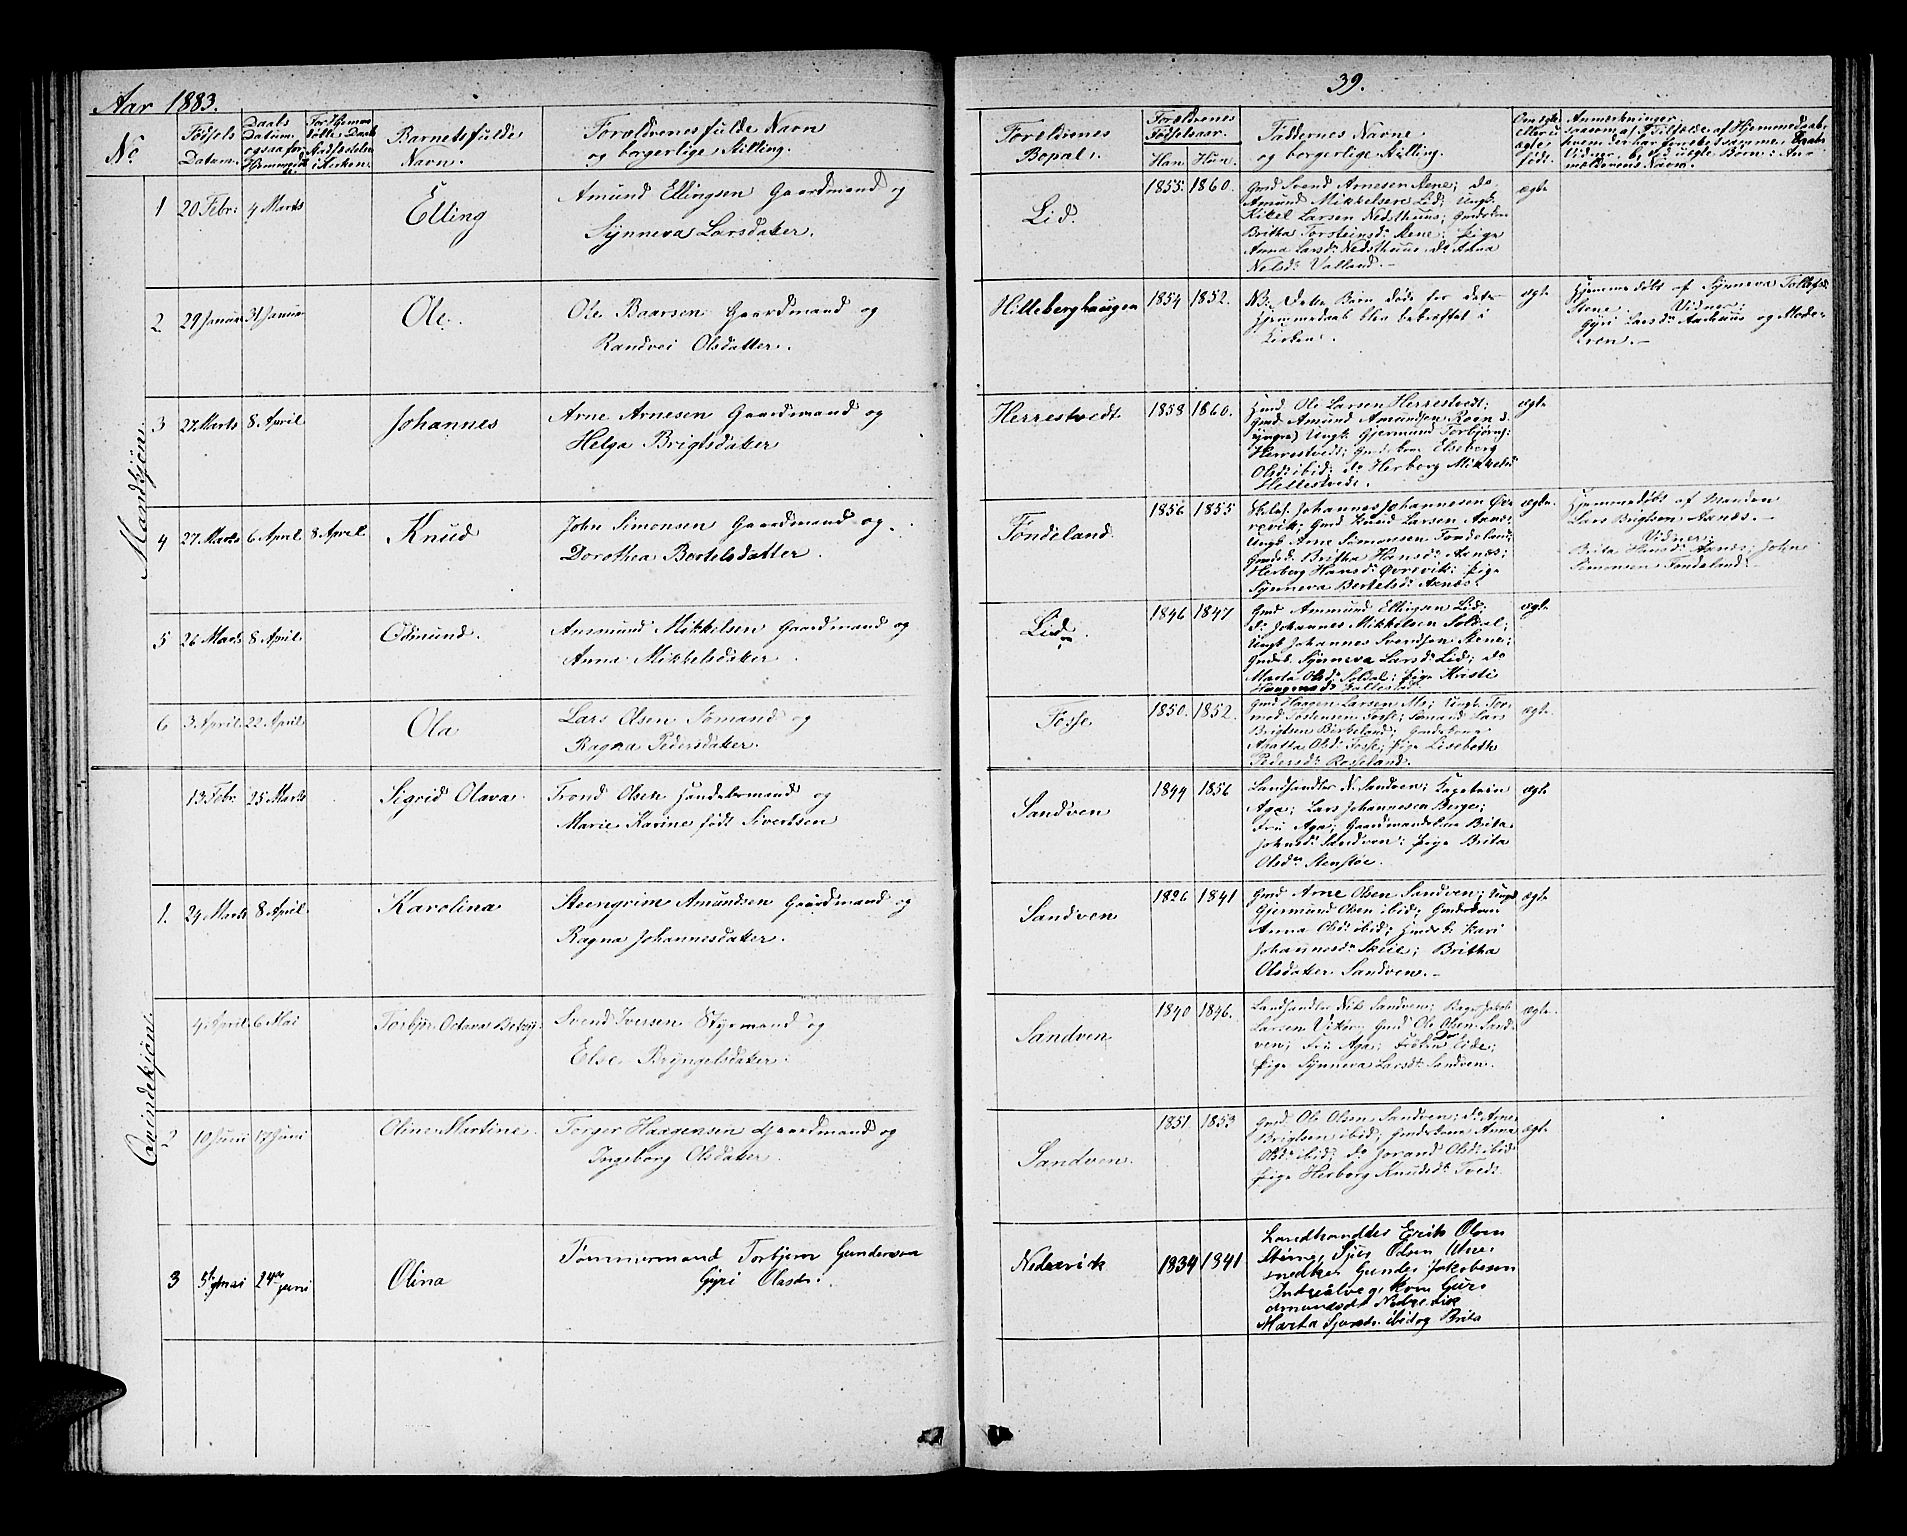 Aar 1883.
39.
No
Fødsels
Datum.
Daabs
Datum
ogsaa for
Barnets fulde
Navn.
Forældrenes fulde Navn
og borgerlige Stilling.
Forældrenes
Bopæl.
Forældrenes
Fødselsaar.
Han. Hun.
Faddernes Navne
og borgerlige Stilling.
Om ægte
eller u
ægte
født.
Anmerkninger,
Mandkjøn.
1 20 Febr: 4 Marts
Elling
Amund Ellingsen Gaardmand og
Synneva Larsdatter.
Lid.
1855. 1860.
Gmd Svend Arnesen Stene; do
Amund Mikkelsen Lid; Ungk.
Kitel Larsen Nedsthuus; Gmdskone
Britha Torsteinsdr Stene; Pige
Anna Larsdr Nedsthuus do Anna
Nelsdr Valland.
ægte
2 29 Januar 31 Januar
Ole.
Ole Baarsen Gaardmand og
Randvei Olsdatter.
Hilleberghaugen
1854 1852.
NB. Dette Barn døde før dets
Hjemmedaab blev bekræftet i
Kirken.
ægte
Hjemmedøbt af Synneva Tollefsdr
Stene. Vidner:
Gyri Larsdr Aarhuus og Mode-
ren.
3 27 Marts 8 April
Johannes
Arne Arnesen Gaardmand og
Helga Brigtsdatter
Herrestvedt
1858 1860.
Gmd Ole Larsen Herrestvedt;
Gmd Amund Amundsen Roen d.
yngre; Ungk. Gjermund Torbjørns:
Herrestvedt; Gmdskone Elseborg
Olsdr ibid; do Herborg Mikkelsdr
ægte
4 27 Marts 6 April 8 April
Knud
John Simonsen Gaardmand og
Dorothea Bertelsdatter.
Tøndeland
1856 1855
Johannes Johannesen Øv-
revik; Gmd Knud Larsen Aanæs;
Ungk. Arne Simonsen Tøndeland;
Gmdsk. Britha Hansdr Aanæs;
Herborg Hansdr Øvrevik; Pige
Synneva Bertelsdr Aanæs.
ægte
Hjemmedøbt af Manden
Lars Brigtsen Aanæs.
Vidner:
Brita Hansdr Aanæs; John
Simonsen Tøndeland.
5 26 Marts 8 April
Odmund.
Ammund Mikkelsen Gaardmand og
Anna Mikkelsdatter.
Lid.
1846 1847
Gmd Ammund Ellingsen Lid;
do Johannes Mikkelsen Soldal;
Ungk. Johannes Svendsen Stene;
Gmdsk. Synneva Larsdr Lid; do
Marta Olsdr Soldal; Pige Kristi
ægte
6 3 April 22 April
Ola
Lars Olsen Sømand og
Ragna Pedersdatter.
Fosse
1850. 1852.
Gmd Haagen Larsen Mo; Ungk. Tor-
mod Torstensen Fosse; Sømand Lars
Brigtsen Birkeland; Gmdskone
Agatha Olsdr Fosse; Pige Lisebeth
Pedersdr Rosseland.
ægte
Qvindekjøn.
13 Febr. 25 Marts
Sigrid Olava.
Trond Olsen Handelsmand og
Marie Karine født Sivertsen
Sandven
1844 1856
Landhandler N. Sandven;
Aga; Lars Johannesen Berge;
Fru Aga; Gaardmandskone Brita
Johnsdr Sandven; Pige Brita
Olsdr Stenstøe.
ægte
1. 24 Marts 8 April
Karolina
Steengrim Amundsen Gaardmand og
Ragna Johannesdatter.
Sandven
1826 1841
Gmd Arne Olsen Sandven; Ungk
Gjermund Olsen ibid; Gmdskone
Anna Olsdr ibid; Gmdsk. Kari
Johannesdr Skeie; Britha
Olsdatter Sandven.
ægte
4 April 6 Mai
Torbjør Octava Betzy.
Svend Iversen Styrmand og
Else Bryngelsdatter.
Sandven
1840 1846.
Landhandler Nils Sandven;
Larsen Vikør; Gmd Ole Olsen Sand-
ven; Fru Aga; Frøken Eide;
Pige Synneva Larsdr Sandven.
ægte.
2 10 Juni 17 Juni
Oline Martine.
Torger Haagensen Gaardmand og
Ingeborg Olsdatter.
Sandven.
1851. 1853
Gmd. Ole Olsen Sandven; do Arne
Brigtsen ibid; Gmdskone Anna
Olsdr ibid; do Jorand Olsdr ibid
Pige Herborg Knudsdr Tveit.
ægte
3 5te Mai 24de Juni
Olina
Tømmermand Torbjørn Gundersen
Gyri Olasdr.
Nedrevik
1834 1841
Landhandler Erik Olsen
Steine, Sjur Odsen Utne
snedker Gunder Jakobsen
Indreålvø, kone Guro
Amundsdt Nedrevik
Marta Sjursdr. ibid og Brita